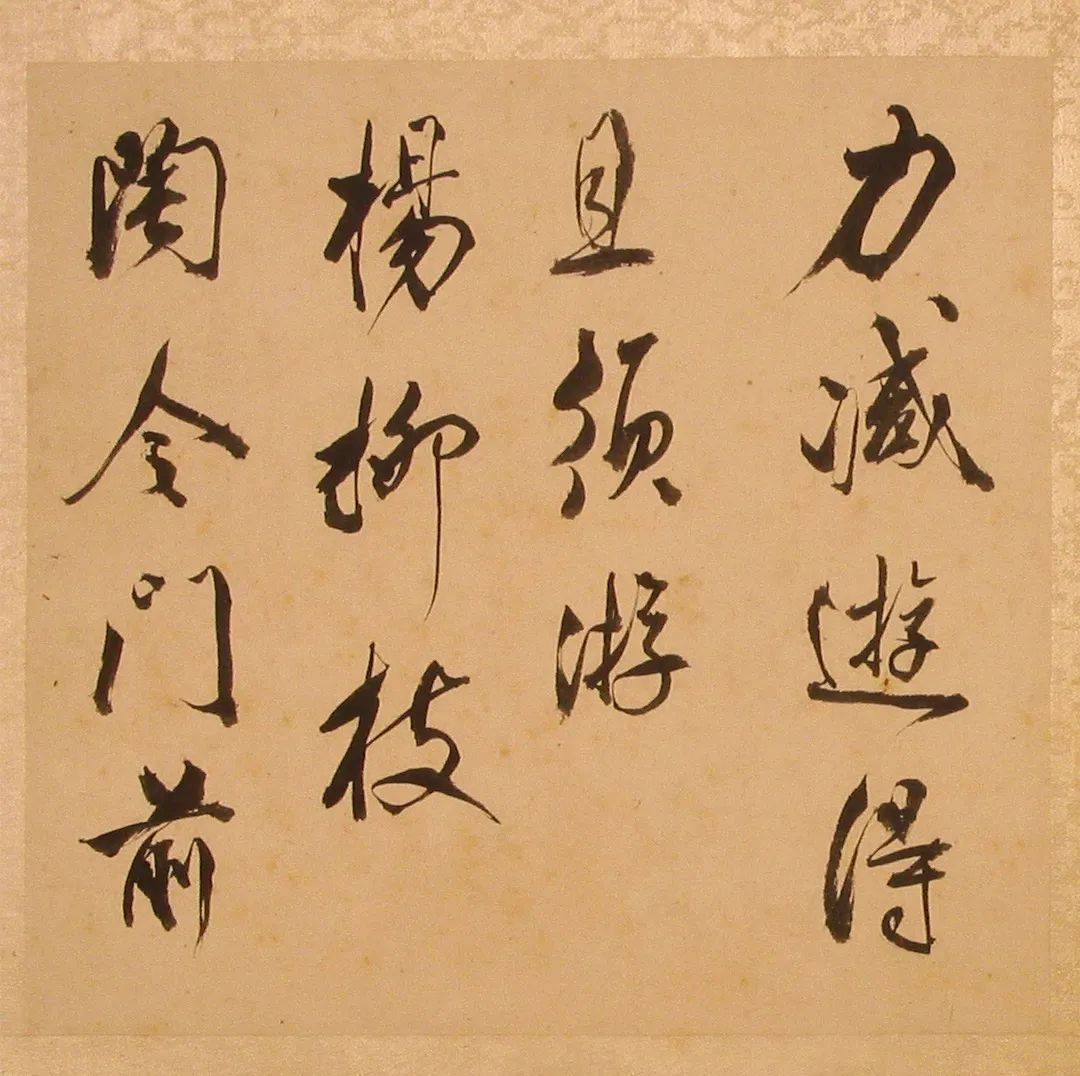 力減遊得
且須游
楊柳枝
陶令門前